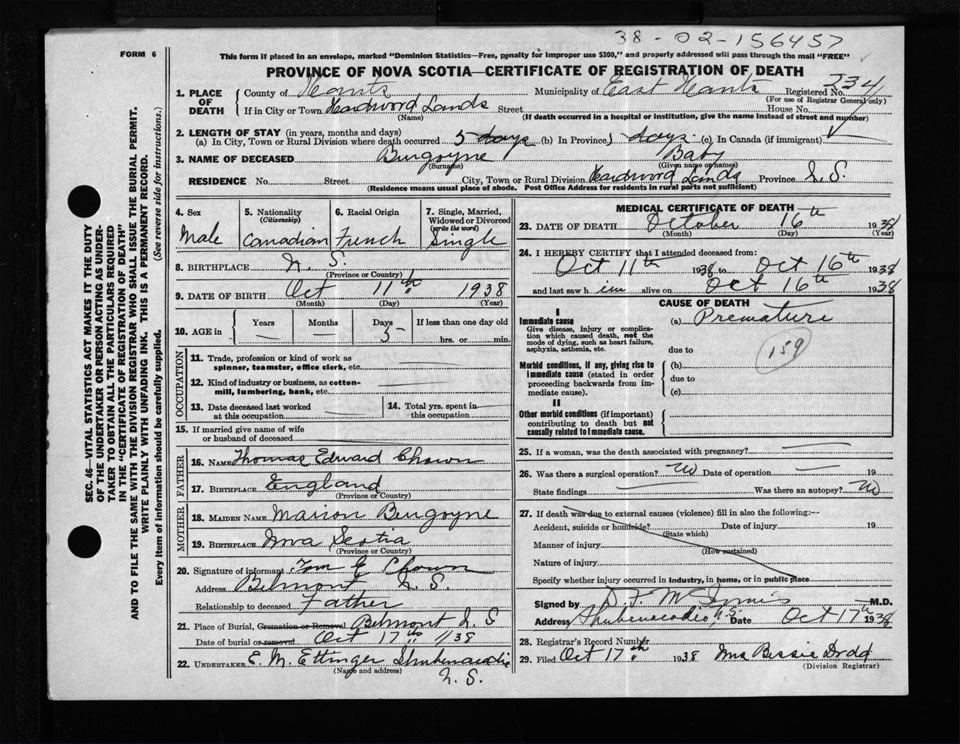 38-02-156457
FORM 6
This form if placed in an envelope, marked "Dominion Statistics—Free, penalty for improper use $300," and properly addressed will pass through the mail "FREE"
PROVINCE OF NOVA SCOTIA—CERTIFICATE OF REGISTRATION OF DEATH
1. PLACE OF DEATH County of Hants Municipality of East Hants Registered No. 234
(For use of Registrar General only)
If in City or Town Hardwood Lands Street House No.
(Name) (If death occurred in a hospital or institution, give the name instead of street and number)
2. LENGTH OF STAY (in years, months and days)
(a) In City, Town or Rural Division where death occurred 5 days (b) In Province days (c) In Canada (if immigrant)
3. NAME OF DECEASED Burgoyne Baby
(Surname) (Given name or names)
RESIDENCE No. Street City, Town or Rural Division Hardwood Lands Province N.S.
(Residence means usual place of abode. Post Office Address for residents in rural parts not sufficient)
4. Sex 5. Nationality (Citizenship) 6. Racial Origin 7. Single, Married, Widowed or Divorced (write the word)
Male Canadian French Single
8. BIRTHPLACE N. S.
(Province or Country)
9. DATE OF BIRTH Oct 11th 1938
(Month) (Day) (Year)
10. AGE in Years Months Days If less than one day old
— — 5 hrs. or min.
OCCUPATION
11. Trade, profession or kind of work as spinner, teamster, office clerk, etc.
12. Kind of industry or business, as cotton-mill, lumbering, bank, etc.
13. Date deceased last worked at this occupation 14. Total yrs. spent in this occupation
15. If married give name of wife or husband of deceased
FATHER
16. NAME Thomas Edward Chown
17. BIRTHPLACE England
(Province or Country)
MOTHER
18. MAIDEN NAME Marion Burgoyne
19. BIRTHPLACE Nova Scotia
(Province or Country)
20. Signature of informant Tom E Chown
Address Belmont N.S.
Relationship to deceased Father
21. Place of Burial, Cremation or Removal Belmont N.S
Date of burial or removal Oct 17th /38
22. UNDERTAKER E. M. Ettinger Shubenacadie
(Name and address) N.S.
MEDICAL CERTIFICATE OF DEATH
23. DATE OF DEATH October 16th 1938
(Month) (Day) (Year)
24. I HEREBY CERTIFY that I attended deceased from:
Oct 11th 1938 to Oct 16th 1938
and last saw h im alive on Oct 16th 1938
CAUSE OF DEATH
I
Immediate cause (a) Premature
Give disease, injury or complication which caused death, not the mode of dying, such as heart failure, asphyxia, asthenia, etc.
due to
159
Morbid conditions, if any, giving rise to immediate cause (stated in order proceeding backwards from immediate cause).
(b)
due to
(c)
II
Other morbid conditions (if important) contributing to death but not causally related to immediate cause.
25. If a woman, was the death associated with pregnancy?
26. Was there a surgical operation? No Date of operation — 19
State findings Was there an autopsy? No
27. If death was due to external causes (violence) fill in also the following:—
Accident, suicide or homicide? Date of injury 19
(State which)
Manner of injury
(How sustained)
Nature of injury
Specify whether injury occurred in industry, in home, or in public place
Signed by D F McInnis M.D.
Address Shubenacadie N.S. Date Oct 17th 1938
28. Registrar's Record Number
29. Filed Oct 17th 1938 Mrs Bessie Dodd
(Division Registrar)
SEC. 46—VITAL STATISTICS ACT MAKES IT THE DUTY OF THE UNDERTAKER OR PERSON ACTING AS UNDERTAKER TO OBTAIN ALL THE PARTICULARS REQUIRED IN THE "CERTIFICATE OF REGISTRATION OF DEATH" AND TO FILE THE SAME WITH THE DIVISION REGISTRAR WHO SHALL ISSUE THE BURIAL PERMIT.
WRITE PLAINLY WITH UNFADING INK. THIS IS A PERMANENT RECORD.
Every item of information should be carefully supplied. (See reverse side for instructions.)